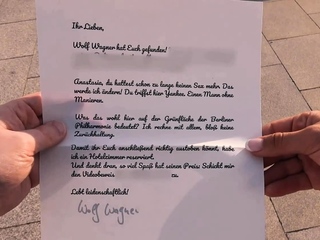 Ihr Lieben,
Wolf Wagner hat Euch gefunden!
Anastasia, du hattest schon zu lange keinen Sex mehr. Das
werde ich ändern! Du triffst hier Yankee. Einen Mann ohne
Manieren.
Was das wohl hier auf der Grünfläche der Berliner
Philharmonie bedeutet? Ich rechne mit allem, bloß keine
Zurückhaltung.
Damit ihr Euch anschließend richtig austoben könnt, habe
ich ein Hotelzimmer reserviert.
Und denkt dran, so viel Spaß hat seinen Preis: Schickt mir
den Videobeweis zu.
Lebt leidenschaftlich!
Wolf Wagner